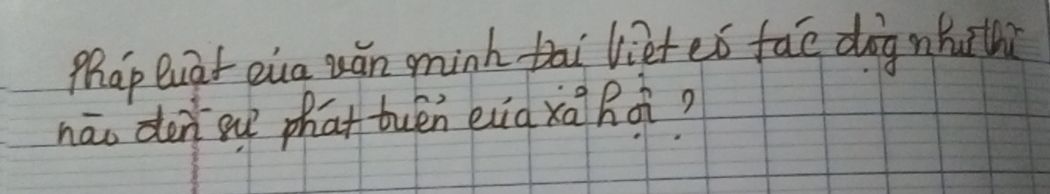 Pháp luật của văn minh Đại Việt có tác động như thế
nào đến sự phát triển của xã hội ?